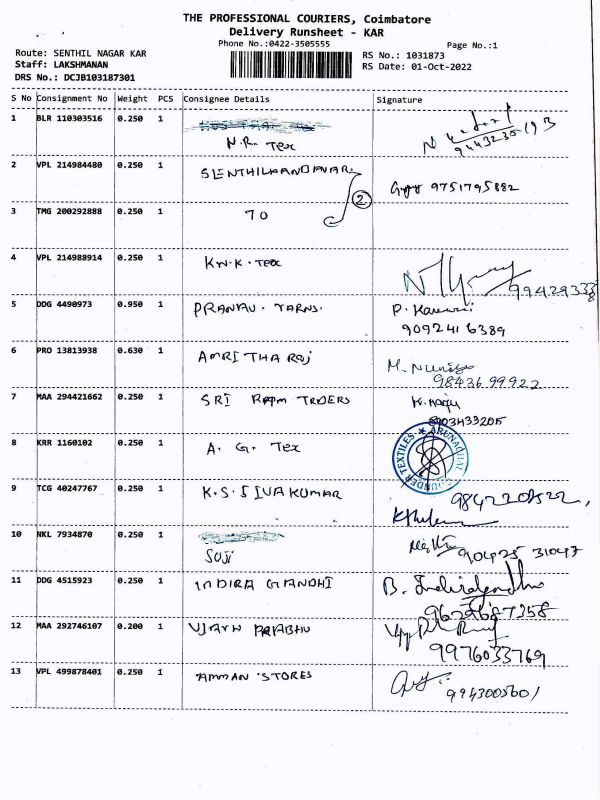 THE PROFESSIONAL COURIERS, Coimbatore
Delivery Runsheet - KAR
Phone No.:0422-3505555
Page No.:1
Route: SENTHIL NAGAR KAR
Staff: LAKSHMANAN
DRS No.: DCJB103187301
RS No.: 1031873
RS Date: 01-Oct-2022
S No Consignment No Weight PCS Consignee Details Signature
1 BLR 110303516 0.250 1
N.R. Tex
2 VPL 214984480 0.250 1 SENTHILAANDAVAR
9751795882
2
3 TMG 200292888 0.250 1 70
4 VPL 214988914 0.250 1 KN.K. Tex
5 DDG 4490973 0.950 1 PRANAV. YARNS. P.
9092416389
6 PRO 13813938 0.630 1 AMRITHA Raj M.
98436 99922
7 MAA 294421662 0.250 1 SRI RAM TRDERS
8903433205
8 KRR 1160102 0.250 1 A. G. Tex
9 TCG 40247767 0.250 1 K.S. SIVAKUMAR
10 NKL 7934870 0.250 1
SUJI
11 DDG 4515923 0.250 1 INDIRA GANDHI B. Indiragandhi
9629687358
12 MAA 292746107 0.200 1 VJAYH PRABHU
9976033769
13 VPL 499878401 0.250 1 AMMAN STORES
9943005601